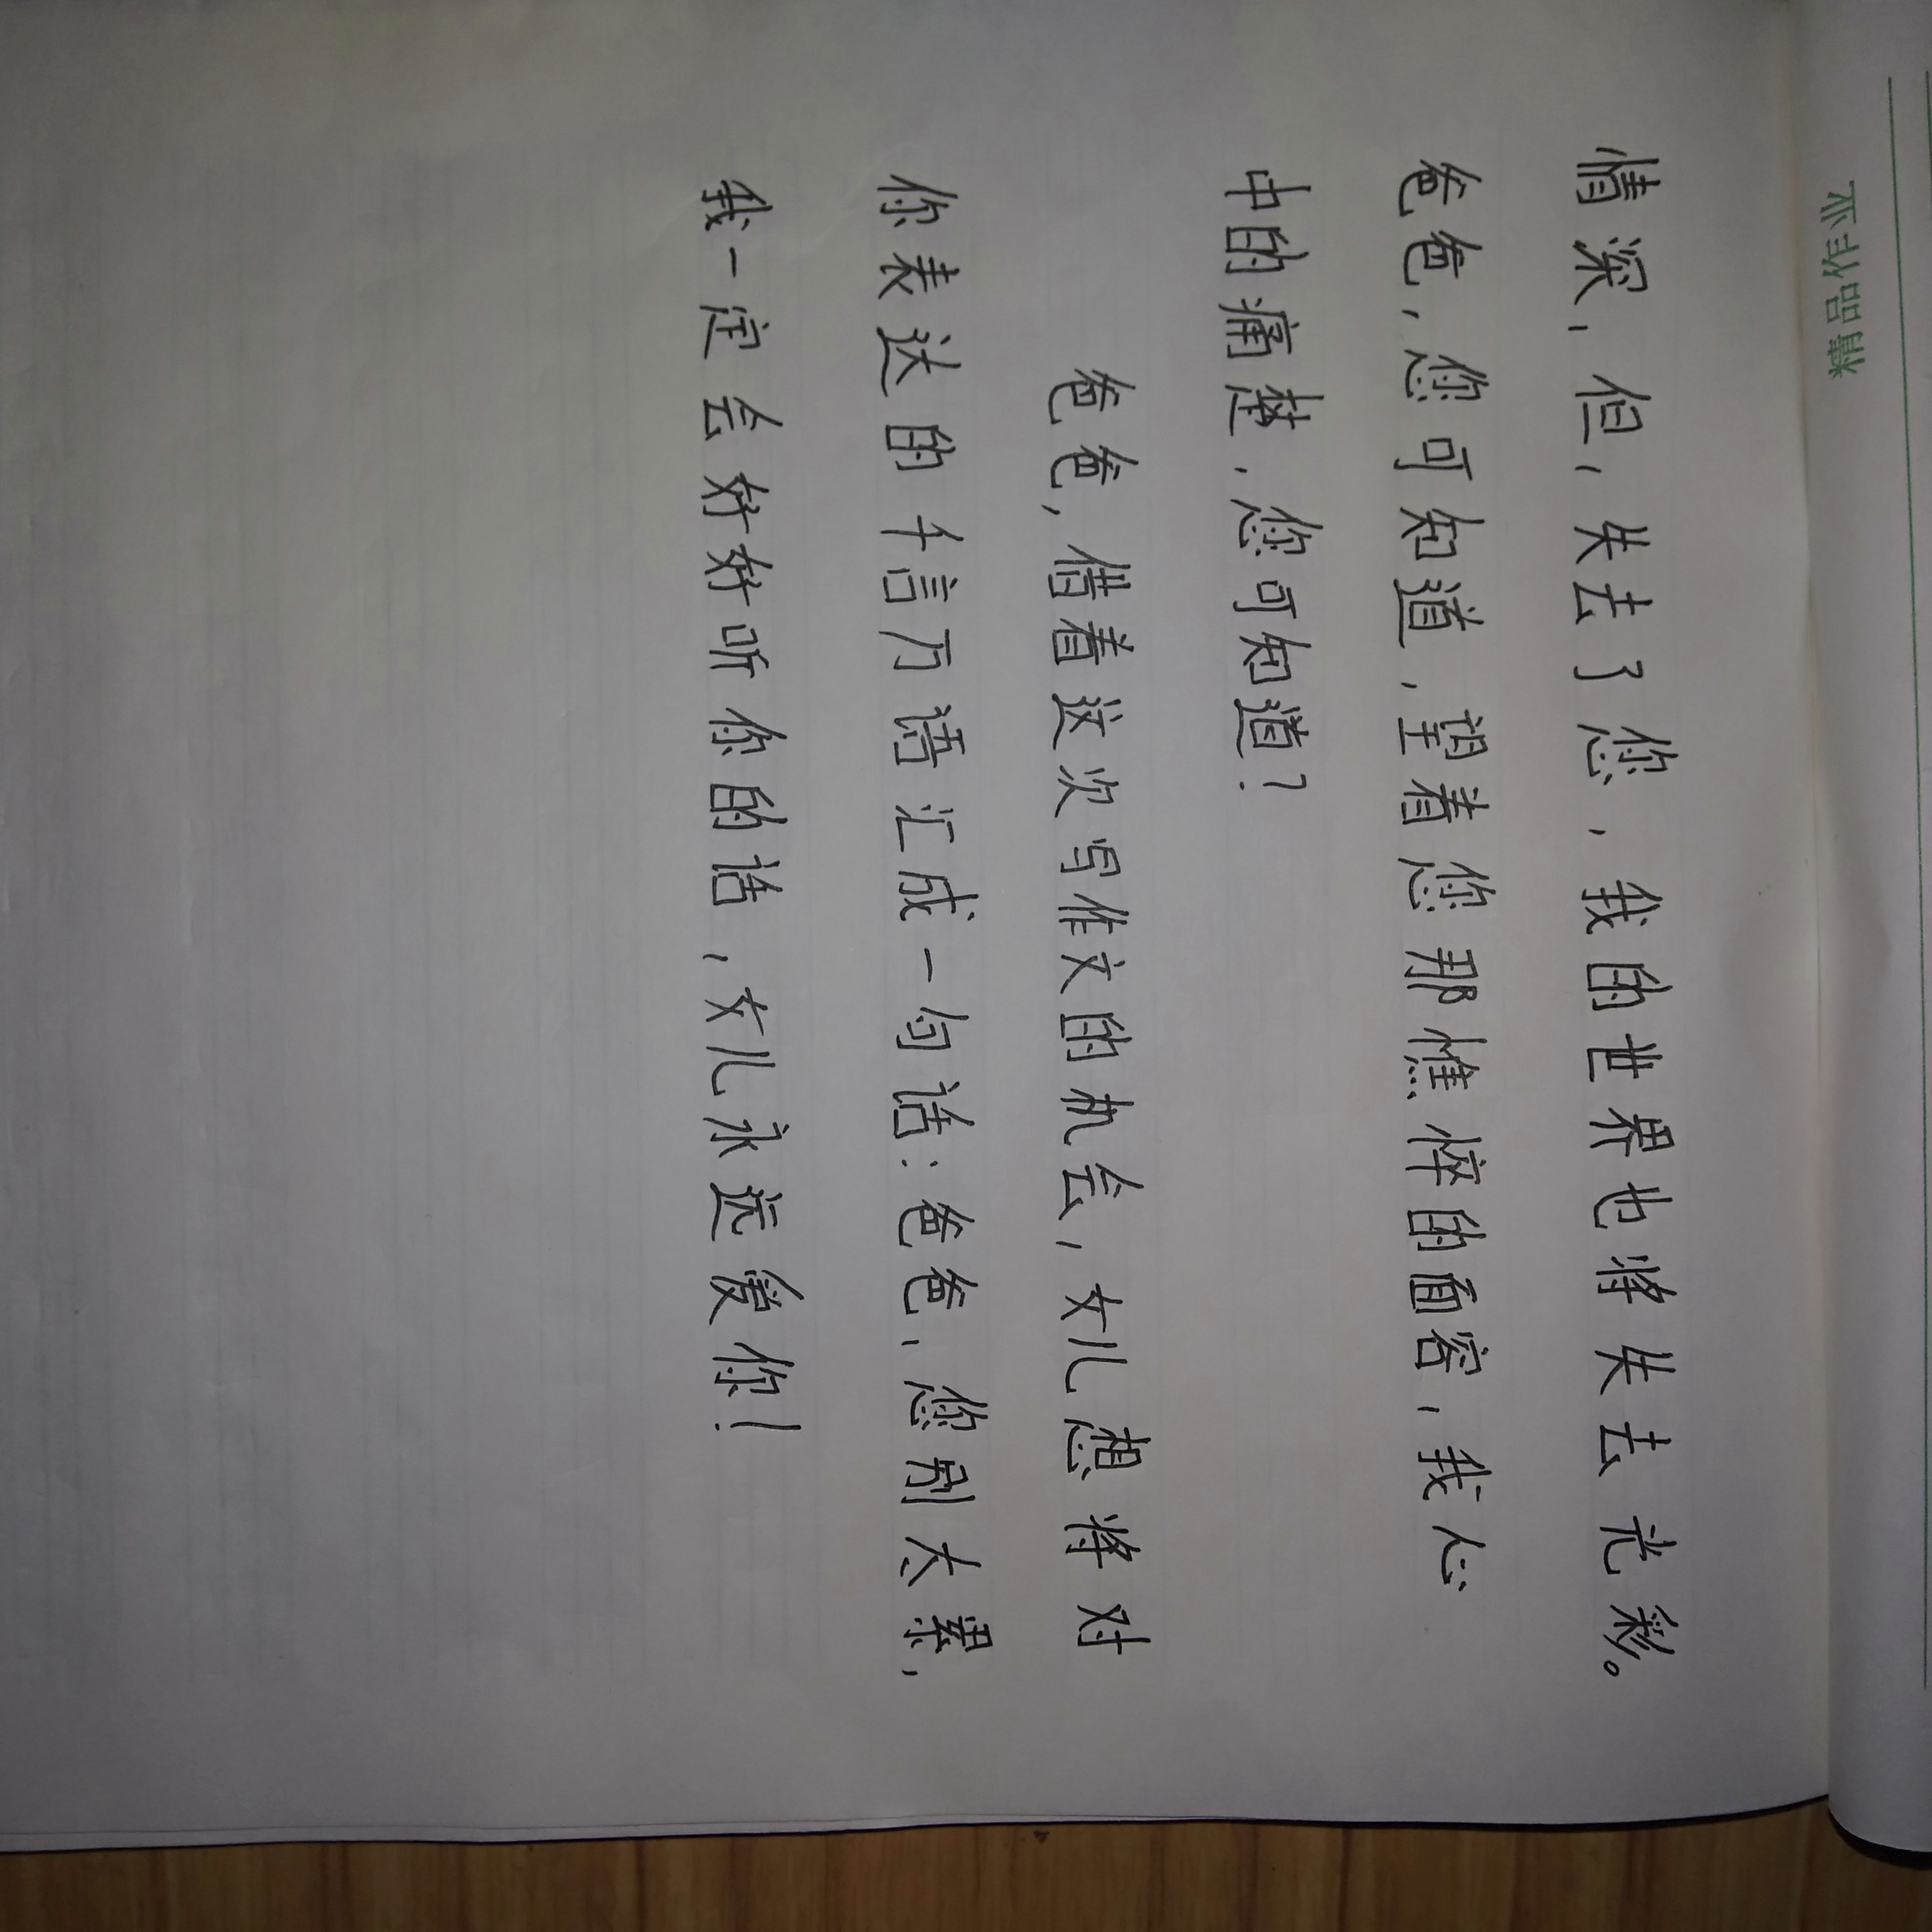 情深，但，失去了您，我的世界也将失去光彩。
爸爸，您可知道，望着您那憔悴的面容，我心
中的痛楚，您可知道？
爸爸，借着这次写作文的机会，女儿想将对
你表达的千言万语汇成一句话：爸爸，您别太累，
我一定会好好听你的话，女儿永远爱你！
精品作业